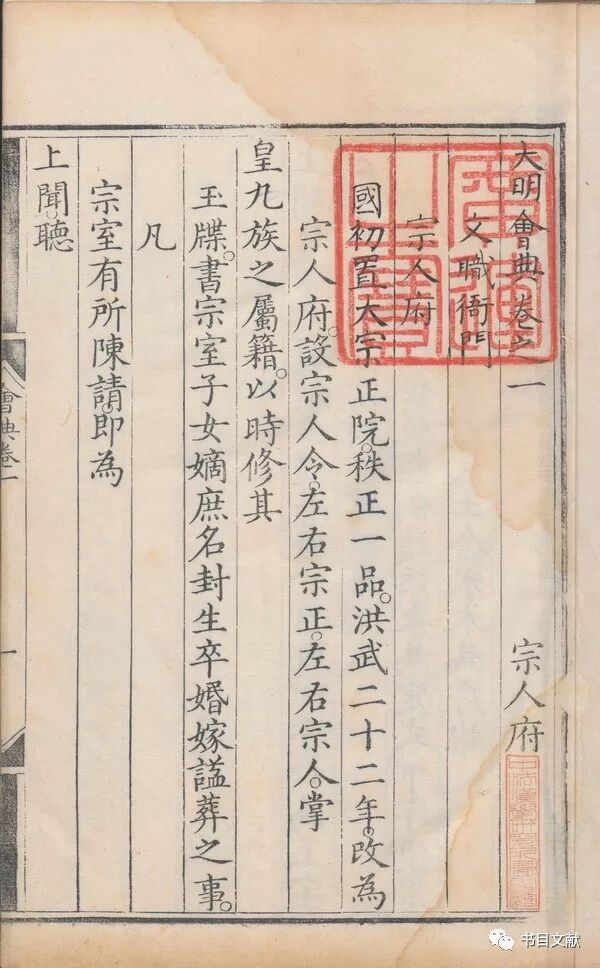 大明會典卷之一 宗人府
文職衙門
宗人府
國初置大宗正院。秩正一品。洪武二十二年。改為
宗人府。設宗人令。左右宗正。左右宗人。掌
皇九族之屬籍。以時修其
玉牒。書宗室子女嫡庶名封生卒婚嫁謚葬之事。
凡
宗室有所陳請。即為
上聞。聽
會典卷一
一
书目文献